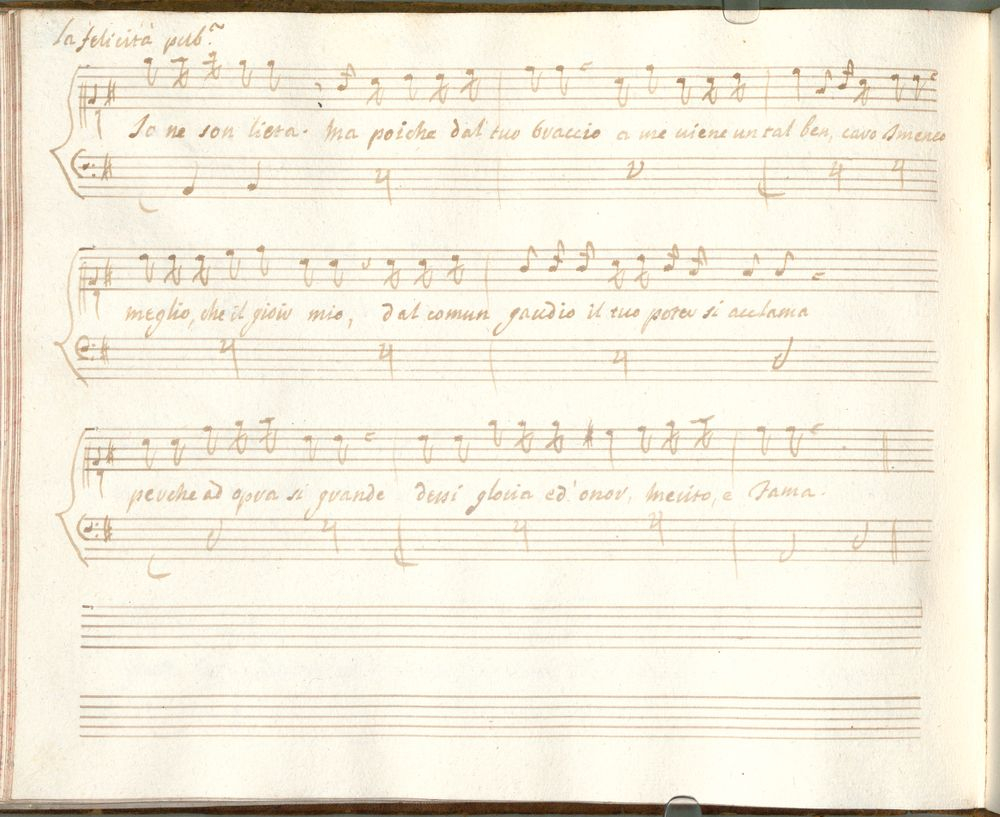 La felicità pub.ca
Io ne son lieta. Ma poiche dal tuo braccio a me viene un tal ben, caro Ismeno
meglio, che il gioir mio, dal comun gaudio il tuo poter si acclama
perche ad opra si grande dessi gloria ed' onor, merito, e Fama.